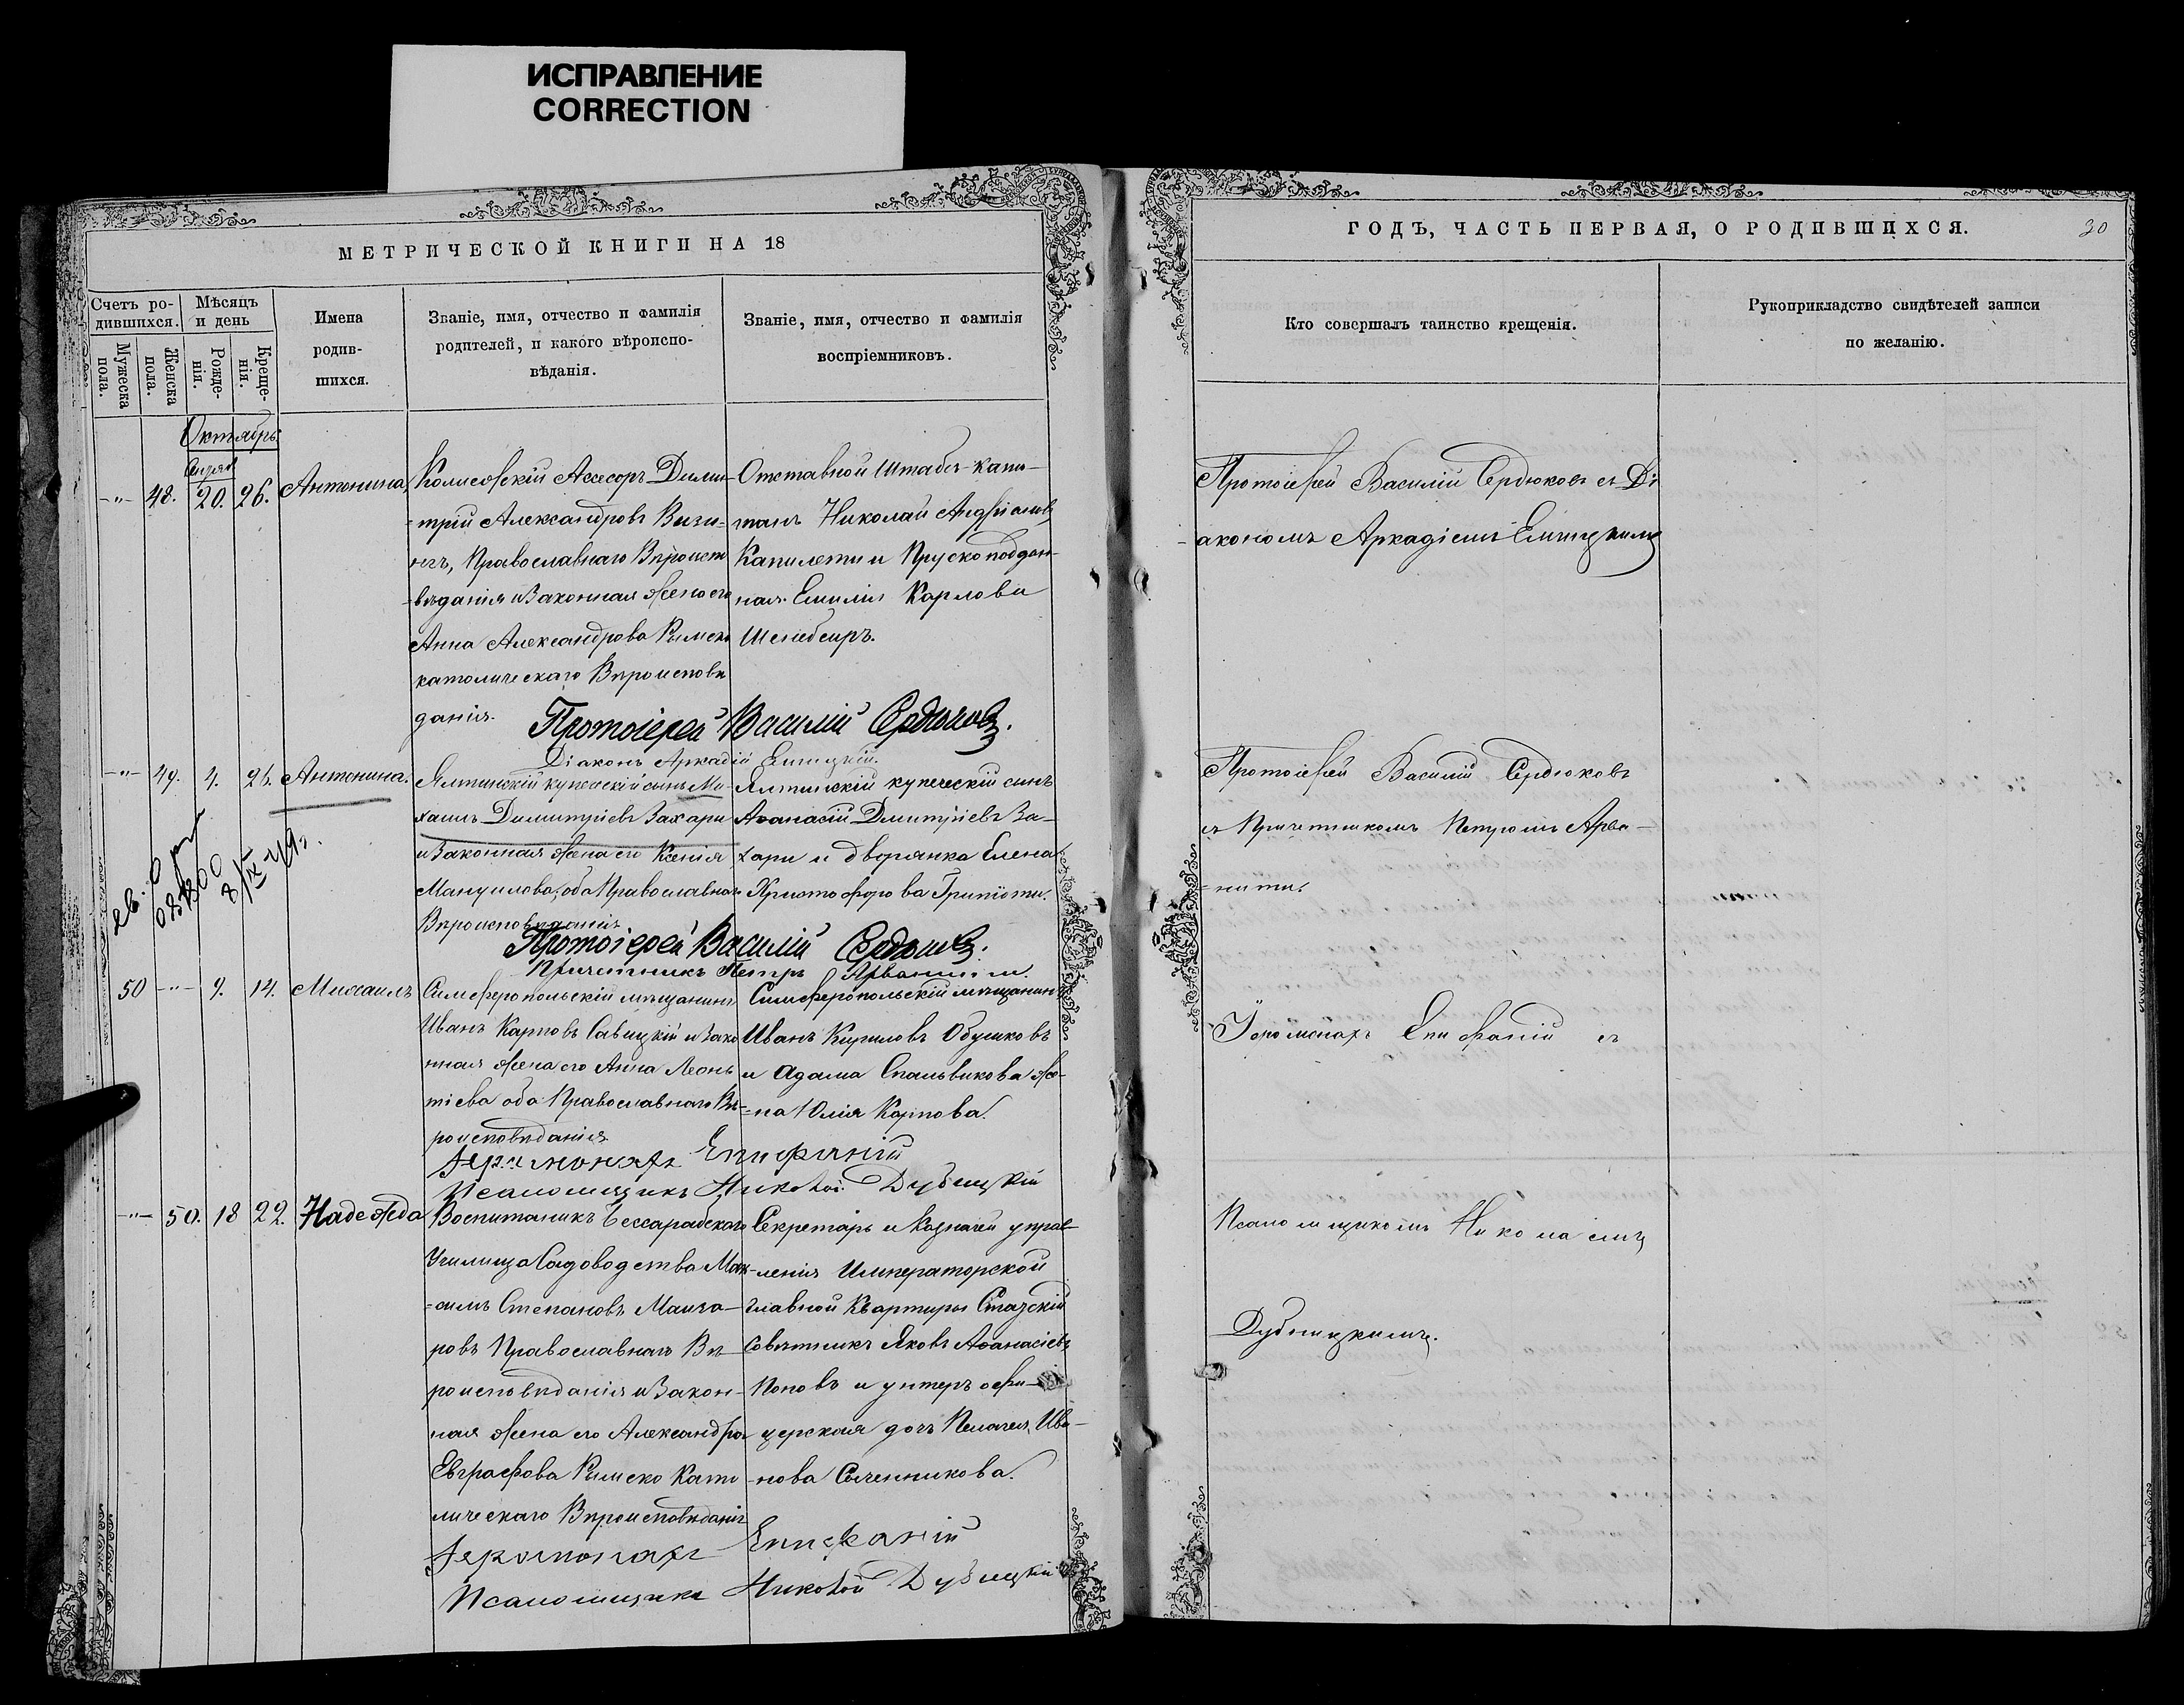 ИСПРАВЛЕНИЕ
CORRECTION
МЕТРИЧЕСКОЙ КНИГИ НА 18
Счетъ ро-
дившихся.
Мѣсяцъ
и день
Мужеска
пола.
Женска
пола.
Рожде-
нія.
Креще-
нія.
Имена
родив-
шихся.
Званіе, имя, отчество и фамилія
родителей, и какого вѣроиспо-
вѣданія.
Званіе, имя, отчество и фамилія
воспріемниковъ.
Октябрь
-"- 48. 20. 26. Антонина
Колежскій Ассесоръ Дими-
трій Александровъ
Православнаго Вѣроисп
вѣданія и Законная жена его
Анна Александрова Римско
католическаго Вѣроисповѣ
данія.
Отставной Штабсъ-капи-
танъ Николай Андреановъ
и Прускоподдан-
ная Емилія Карлова
Протоіерей Василій Сердюковъ.
Діаконъ Аркадій
-"- 49. 4. 26. Антонина.
Ялтинскій купеческій сынъ Ми-
хаилъ Димитріевъ Захари
и Законная жена его Ксенія
Мануилова, оба Православнаго
Вѣроисповѣданія
Ялтинскій купеческій сынъ
Аѳанасій Дмитріевъ За-
хари и дворянка Елена
Христофорова
Протоіерей Василій Сердюковъ.
Причетникъ Петръ Арванити.
50 -"- 9. 14. Михаилъ
Симферопольскій мѣщанинъ
Иванъ Карповъ Савицкій и Зако
нная жена его Анна Леонь
тіева оба Православнаго Вѣ-
роисповѣданія
Симферопольскій мѣщанинъ
Иванъ Кириловъ Обушковъ
и Адама Спальвикова же-
=на Юлія Карпова.
Іеромонахъ Епифаній
Псаломщикъ Николай Дубицкій
-"- 50. 18 22. Надежда
Воспитаникъ Бессарабскаго
Училища Садоводства Мак-
=симъ Степановъ
ровъ Православнаго Вѣ-
роисповѣданія и Закон-
ная жена его Александра
Евграфова Римско Като
лическаго Вѣроисповѣданія
Секретарь и Казначей управ-
ленія Императорской
главной Квартиры Статскій
Совѣтникъ Яковъ Аѳанасіевъ
Поповъ и унтеръ офи-
церская дочь Пелагея Ива-
нова
Іеромонахъ Епифаній
Псаломщикъ Николай Дубицкій
ГОДЪ, ЧАСТЬ ПЕРВАЯ, О РОДИВШИХСЯ.
30
Кто совершалъ таинство крещенія.
Рукоприкладство свидѣтелей записи
по желанію.
Протоіерей Василій Сердюковъ съ Ді
акономъ Аркадіемъ
Протоіерей Василій Сердюковъ
съ Причетникомъ Петромъ Арва-
=нити.
Іеромонахъ Епифаній съ
Псаломщикомъ Николаемъ
Дубицкимъ.